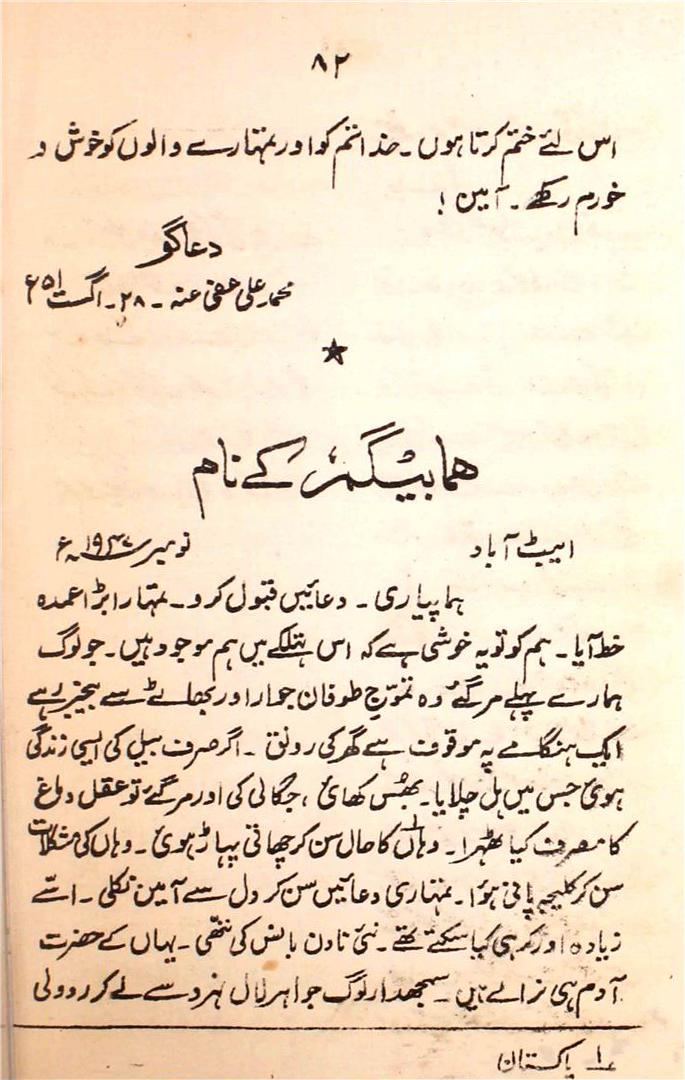 ۸۲
اس لئے ختم کرتا ہوں۔ خدا تم کو اور تمہارے والوں کو خوش و
خورم رکھے۔ آمین!
دعاگو
محمد علی عفی عنہ۔ ۲۸۔ اگست ۵۱ء
ہما بیگم کے نام
ایبٹ آباد نومبر ۱۹۴۷ء
ہما پیاری۔ دعائیں قبول کرو۔ تمہارا بڑا عمدہ
خط آیا۔ ہم کو تو یہ خوشی ہے کہ اس تہلکے میں ہم موجود ہیں۔ جو لوگ
ہمارے پہلے مرگئے وہ تموّجِ طوفان جوار اور بھاٹے سے بیخبر رہے
ایک ہنگامے پہ موقوف ہے گھر کی رونق۔ اگر صرف بیل کی ایسی زندگی
ہوئ جس میں ہل چلایا۔ بھُس کھائ، جگالی کی اور مرگئے تو عقل و دماغ
کا مصرف کیا ٹھہرا۔ وہاں کا حال سن کر چھاتی پہاڑ ہوئ۔ وہاں کی مشکلات
سن کر کلیجہ پانی ہؤا۔ تمہاری دعائیں سن کر دل سے آمین نکلی۔ اسّے
زیادہ اور کر ہی کیا سکتے تھے۔ نئ نادن بانس کی نتھی۔ یہاں کے حضرت
آدم ہی نرالے ہیں۔ سمجھدار لوگ جواہر لال نہرو سے لے کر ردولی
۱؎ پاکستان